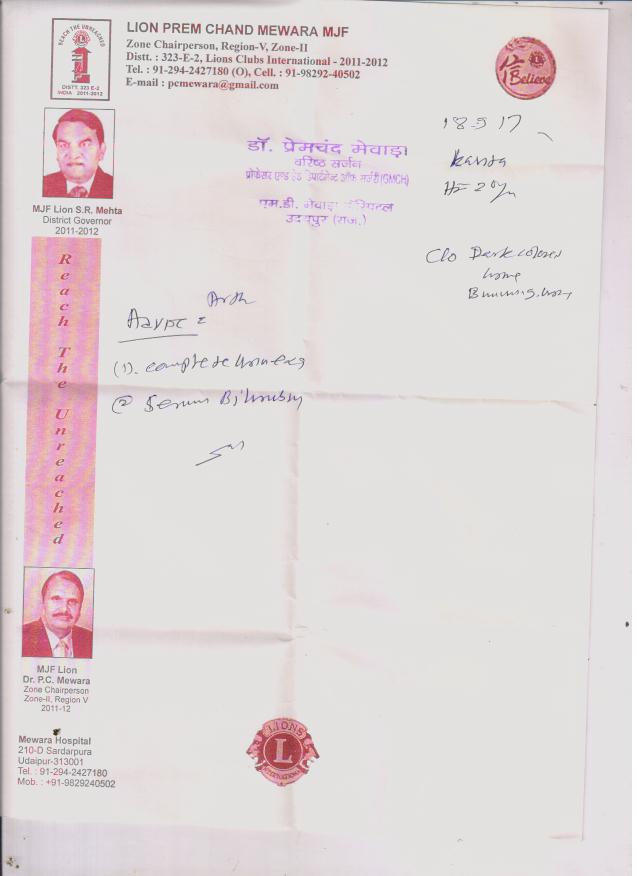 LION PREM CHAND MEWARA MJF
Zone Chairperson, Region-V, Zone-II
Distt. : 323-E-2, Lions Clubs International - 2011-2012
Tel. : 91-294-2427180 (O), Cell. : 91-98292-40502
E-mail : pcmewara@gmail.com
REACH THE UNREACHED
DISTT. 323 E-2
INDIA 2011-2012
信
Believe
MJF Lion S.R. Mehta
District Governor
2011-2012
डॉ. प्रेमचंद मेवाड़ा
वरिष्ठ सर्जन
प्रोफेसर एण्ड हेड डिपार्टमेन्ट ऑफ सर्जरी(GMCH)
एम.डी. मेवाड़ा हॉस्पिटल
उदयपुर (राज.)
18-5 17
C/o Dark colored
Advice
(1). complete
(2) Serum Bilirubin
Reach The Unreached
MJF Lion
Dr. P.C. Mewara
Zone Chairperson
Zone-II, Region V
2011-12
Mewara Hospital
210-D Sardarpura
Udaipur-313001
Tel. : 91-294-2427180
Mob. : +91-9829240502
LIONS
L
INTERNATIONAL